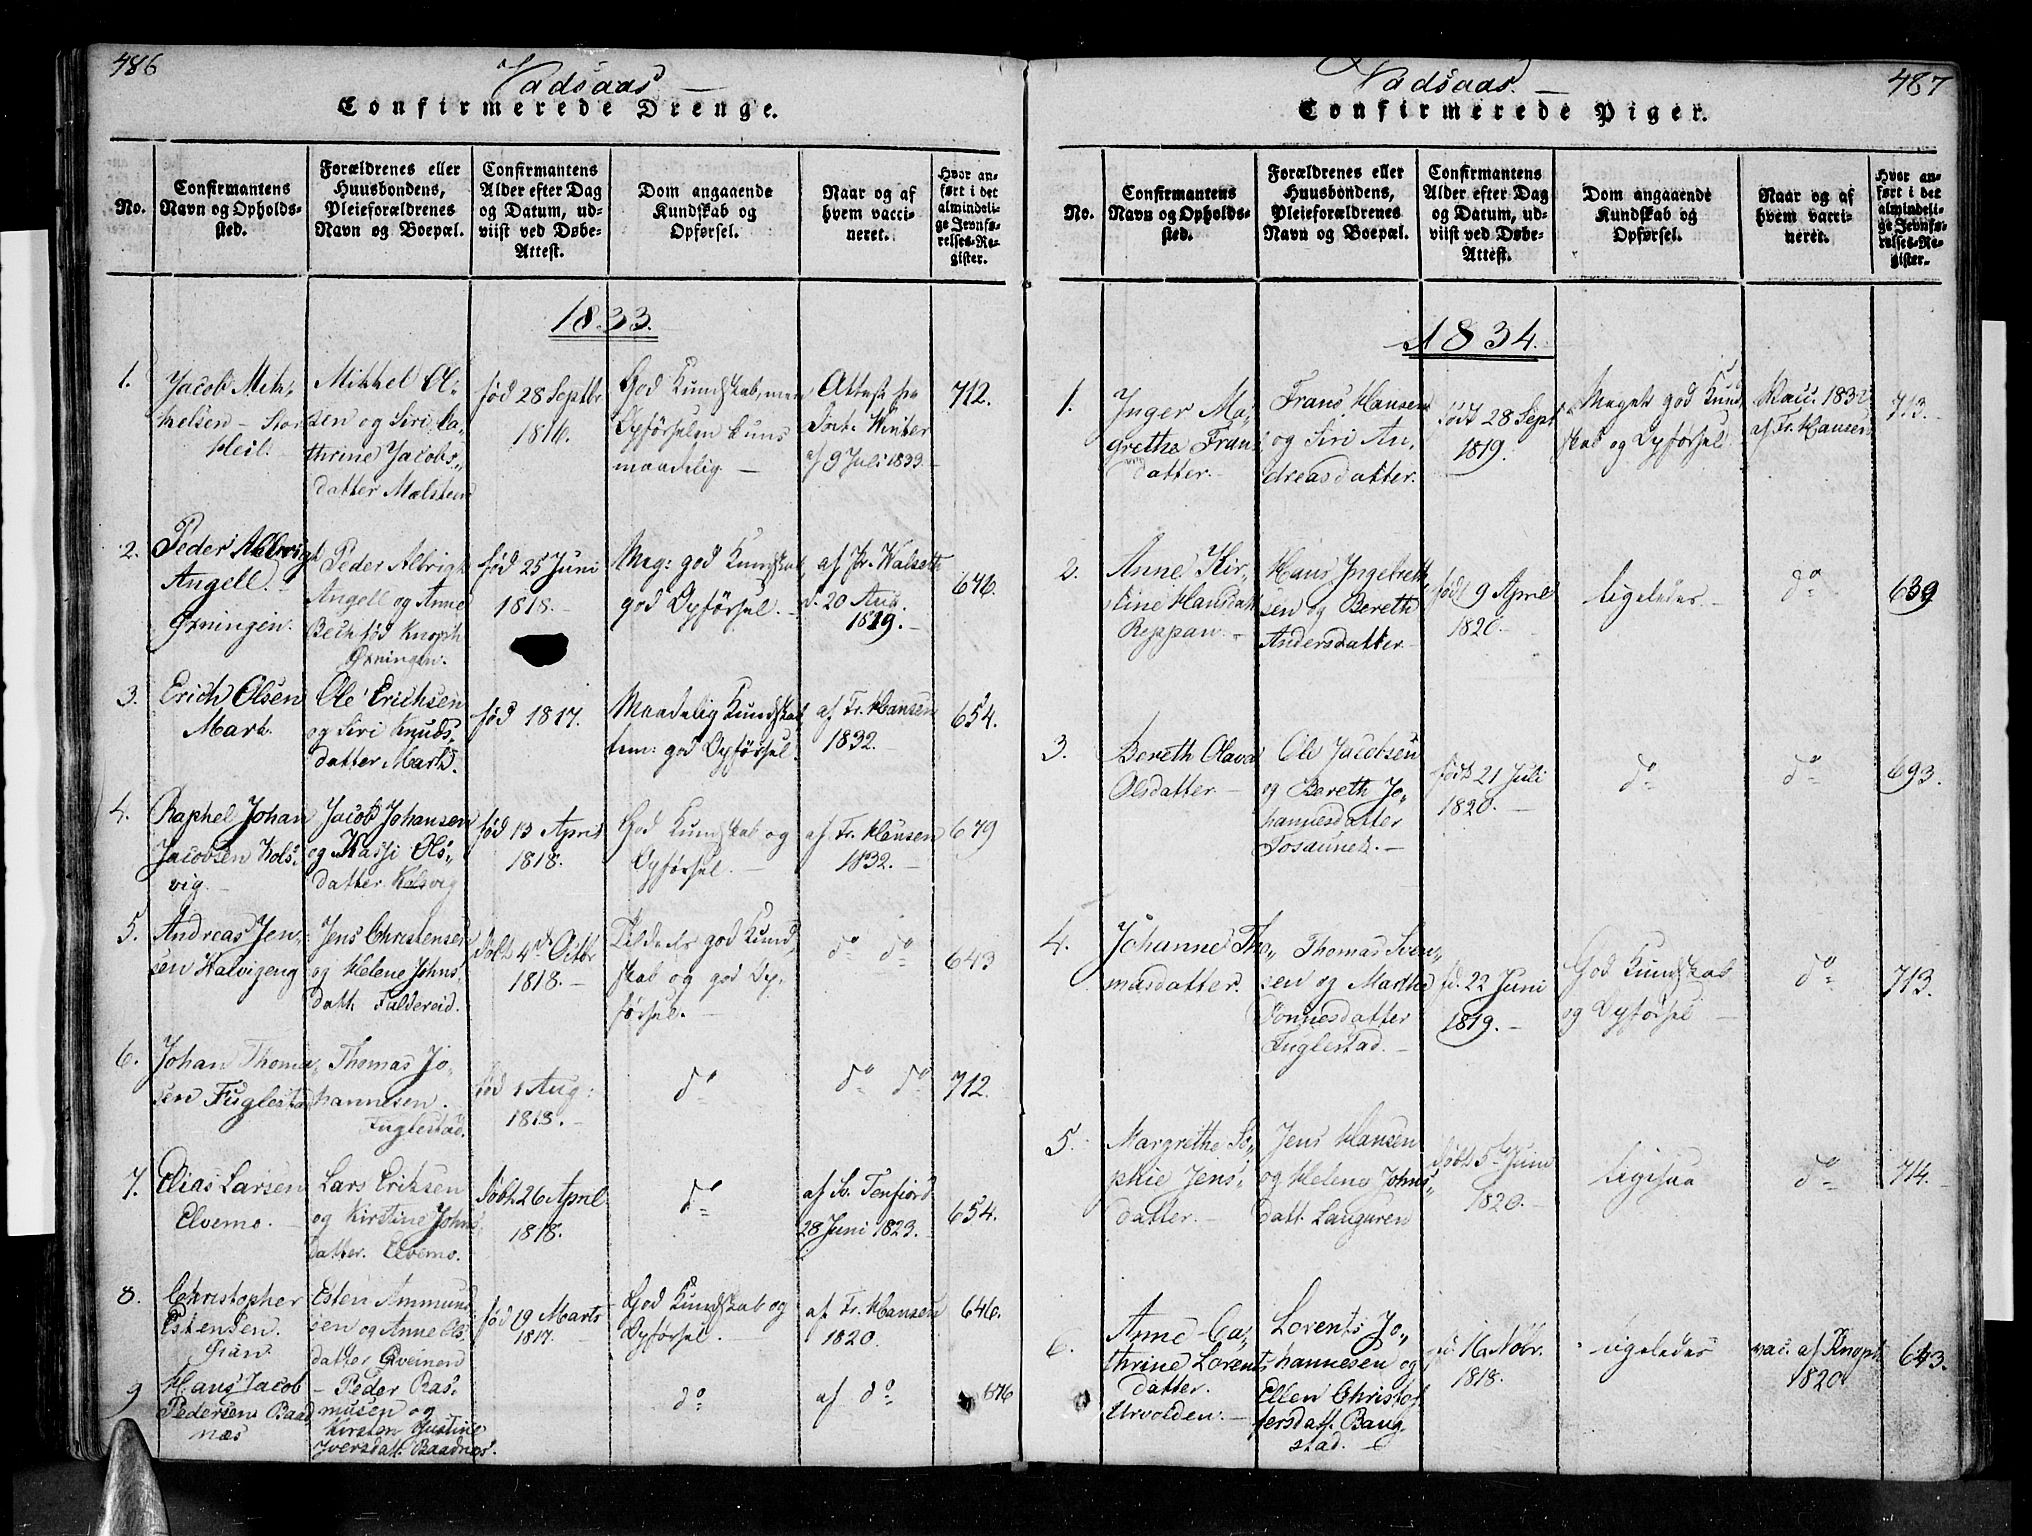 486
Vadsaas.
Confirmerede Drenge.
No.
Confirmantens
Navn og Opholds-
sted.
Forældrenes eller
Huusbondens,
Pleieforældrenes
Navn og Boepæl.
Confirmantens
Alder efter Dag
og Datum, ud-
viist ved Døbe-
Attest.
Dom angaaende
Kundskab og
Opførsel.
Naar og af
hvem vacci-
neret.
Hvor an-
ført i det
almindeli-
ge Jevnfø-
relses-Re-
gister.
1833.
1.
Jacob Mik-
kelsen
Heil.
Mikkel Ol-
sen og Siri Ca-
thrine Jacobs-
datter
fød 28 Septbr
1816.
God Kundskab, men
Opførselen kuns
maadelig
Attest fra
Winter
af 9 Juli 1833
712.
2.
Peder Albrigt
Angell.
Ørningen.
Peder Albrigt
Angell og Anne
Bech fød Knoph
Ørningen.
fød 25 Juni
1818.
Meg: god Kundskab
god Opførsel.
af
d. 20 Aug.
1819.
646.
3.
Erich Olsen
Mark.
Ole Erichsen
og Siri Knuds-
datter Mark.
fød 1817.
Maadelig Kundskab
tem: god Opførsel.
af Fr. Hansen
1832.
654.
4.
Raphel Johan
Jacobsen Kols-
vig.
Jacob Johansen
og Massi Ols-
datter Kolsvig
fød 13 April
1818.
God Kundskab og
Opførsel.
af Fr. Hansen
1832.
679
5.
Andreas Jen-
sen Kalvigeng
Jens Christensen
og Helene Johns-
datt. Faldereid.
Døbt 4de Octbr
1818.
god Kund-
skab og god Op-
førsel.
do do
643
6.
Johan Thoma-
sen Fuglestad
Thomas Jo-
hannesen.
Fuglestad.
fød 1 Aug:
1818.
do
do do
712.
7.
Elias Larsen
Elvemo.
Lars Eriksen
og Kirstine Johns-
datter. Elvemo.
Døbt 26 April
1818.
do
af Sv. Tenfiord
28 Juni 1823.
654.
8.
Christopher
Estensen.
Esten Ammund-
sen og Anne Ols-
datter Qveinen
fød 19 Marts
1817.
God Kundskab og
Opførsel.
af Fr. Hansen
1820.
646.
9
Hans Jacob
Pedersen Baad
næs
Peder Ras-
musen og
Kirsten Justine
Iversdatt. Baadnæs.
do
af do
676
487
Vadsaas.
Confirmerede Piger.
No.
Confirmantens
Navn og Opholds-
sted.
Forældrenes eller
Huusbondens,
Pleieforældrenes
Navn og Boepæl.
Confirmantens
Alder efter Dag
og Datum, ud-
viist ved Døbe-
Attest.
Dom angaaende
Kundskab og
Opførsel.
Naar og af
hvem vacci-
neret.
Hvor an-
ført i det
almindeli-
ge Jevnfø-
relses-Re-
gister.
1834.
1.
Inger Ma-
grethe Frans
datter.
Frans Hansen
og Siri An-
dreasdatter.
født 28 Sept
1819.
Meget god Kund
skab og Opførsel.
Vacc. 1832
af Fr. Hansen
713.
2.
Anne Kir-
stine Hansdatt
Reppan.
Hans Ingebreth-
sen og Bereth
Andersdatter
født 9 April
1820.
ligeledes
do
639
3.
Bereth Olava
Olsdatter
Ole Jacobsen
og Bereth Jo-
hannesdatter
Tosaunet.
født 21 Juli
1820.
do
do
693.
4.
Johanne Tho-
masdatter.
Thomas Sven-
sen og Marthe
Tonnesdatter
Fuglestad.
fd. 22 Juni
1819.
God Kundskab
og Opførsel
do
713.
5.
Margrethe So-
phie Jens-
datter.
Jens Hansen
og Helene Johns-
datt. Langøren
Døbt 5te Juni
1820.
ligesaa
do
714.
6.
Anne Ca-
thrine Lorents
datter.
Urvolden.
Lorents Jo-
hannesen og
Ellen Christof-
fersdatt. Baug-
stad.
16 Nobr.
1818.
ligeledes
vac. af Knoph
1820
643.